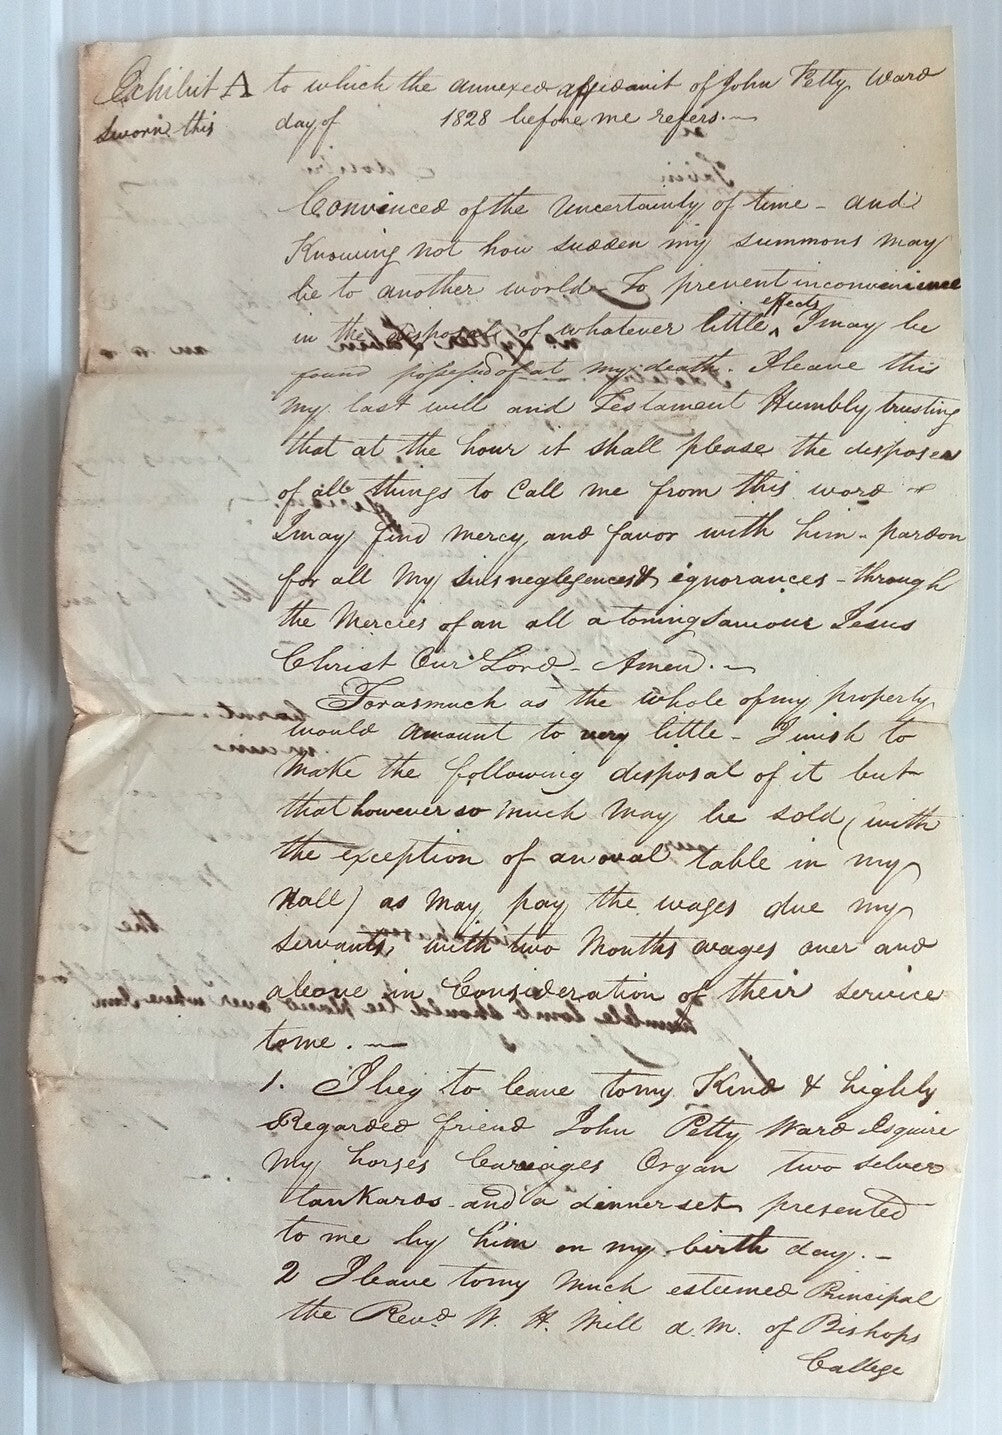 Exhibit A to which the annexed affidavit of John Petty Ward
Sworn this day of 1828 before me refers.
Convinced of the Uncertainty of time - and
Knowing not how sudden my summons may
be to another world - To prevent inconvenience
in the disposal of whatever little effects I may be
found possessed of at my death. I leave this
my last will and Testament Humbly trusting
that at the hour it shall please the disposer
of all things to Call me from this word
I may find mercy and favor with him - pardon
for all my sins neglegences & ignorances - through
the Mercies of an all atoning Saviour Jesus
Christ Our Lord - Amen.
Forasmuch as the whole of my property
would amount to very little - I wish to
Make the following disposal of it but
that however so much may be sold (with
the exception of an oval table in my
Hall) as may pay the wages due my
servants, with two Months wages over and
above in Consideration of their service
to me.
1. I beg to leave to my Kind & highly
Regarded friend John Petty Ward Esquire
My horses Carriages Organ two selver
tankards and a dinner set presented
to me by him on my birth day. -
2 I leave to my Much esteemed Principal
the Revd. W. H. Mill A.M. of Bishops
College